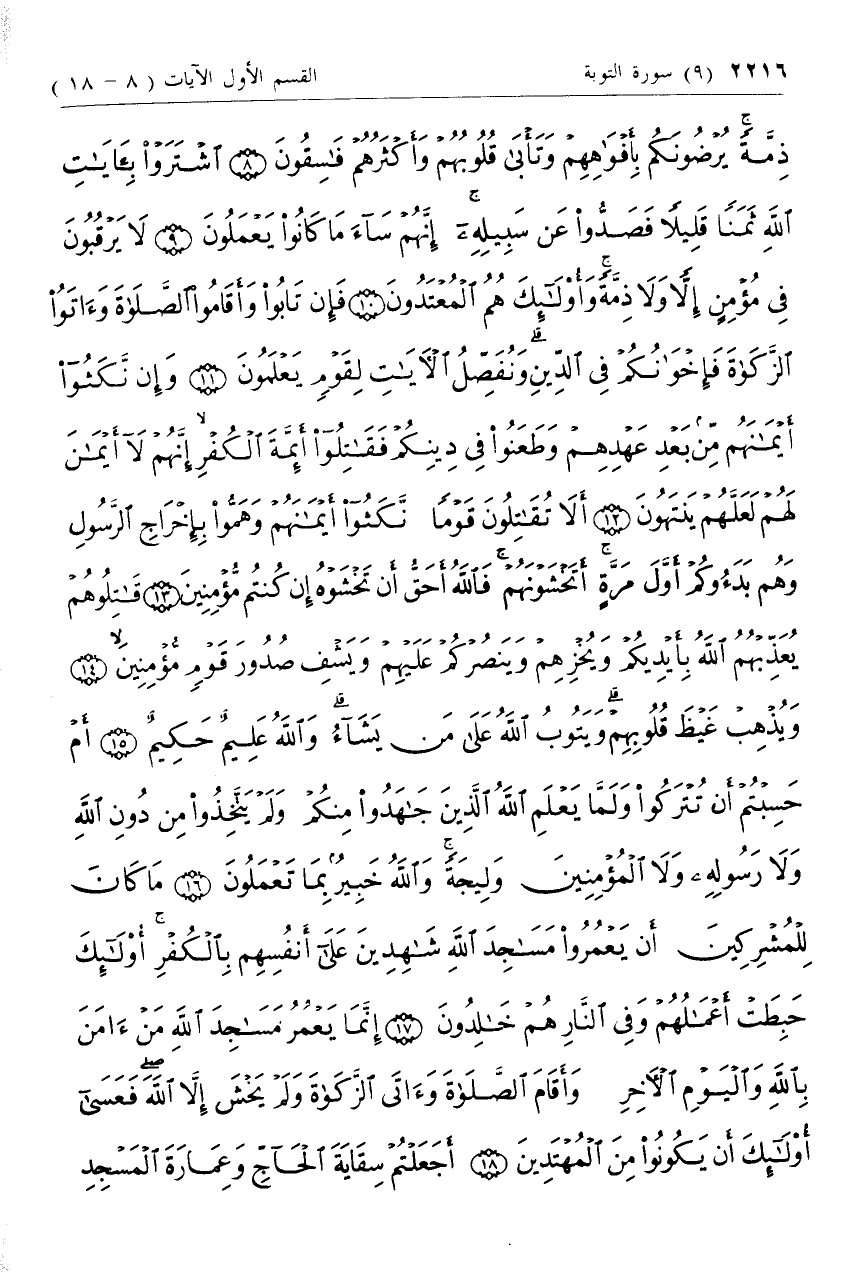 ٢٢١٦ (٩) سورة التوبة القسم الأول الآيات ( ٨ - ١٨ )
ذِمَّةً ۚ يُرْضُونَكُم بِأَفْوَٰهِهِمْ وَتَأْبَىٰ قُلُوبُهُمْ وَأَكْثَرُهُمْ فَـٰسِقُونَ ﴿٨﴾ ٱشْتَرَوْا۟ بِـَٔايَـٰتِ
ٱللَّهِ ثَمَنًا قَلِيلًا فَصَدُّوا۟ عَن سَبِيلِهِۦٓ ۚ إِنَّهُمْ سَآءَ مَا كَانُوا۟ يَعْمَلُونَ ﴿٩﴾ لَا يَرْقُبُونَ
فِى مُؤْمِنٍ إِلًّا وَلَا ذِمَّةً ۚ وَأُو۟لَـٰٓئِكَ هُمُ ٱلْمُعْتَدُونَ ﴿١٠﴾ فَإِن تَابُوا۟ وَأَقَامُوا۟ ٱلصَّلَوٰةَ وَءَاتَوُا۟
ٱلزَّكَوٰةَ فَإِخْوَٰنُكُمْ فِى ٱلدِّينِ ۗ وَنُفَصِّلُ ٱلْـَٔايَـٰتِ لِقَوْمٍ يَعْلَمُونَ ﴿١١﴾ وَإِن نَّكَثُوٓا۟
أَيْمَـٰنَهُم مِّنۢ بَعْدِ عَهْدِهِمْ وَطَعَنُوا۟ فِى دِينِكُمْ فَقَـٰتِلُوٓا۟ أَئِمَّةَ ٱلْكُفْرِ ۙ إِنَّهُمْ لَآ أَيْمَـٰنَ
لَهُمْ لَعَلَّهُمْ يَنتَهُونَ ﴿١٢﴾ أَلَا تُقَـٰتِلُونَ قَوْمًا نَّكَثُوٓا۟ أَيْمَـٰنَهُمْ وَهَمُّوا۟ بِإِخْرَاجِ ٱلرَّسُولِ
وَهُم بَدَءُوكُمْ أَوَّلَ مَرَّةٍ ۚ أَتَخْشَوْنَهُمْ ۚ فَٱللَّهُ أَحَقُّ أَن تَخْشَوْهُ إِن كُنتُم مُّؤْمِنِينَ ﴿١٣﴾ قَـٰتِلُوهُمْ
يُعَذِّبْهُمُ ٱللَّهُ بِأَيْدِيكُمْ وَيُخْزِهِمْ وَيَنصُرْكُمْ عَلَيْهِمْ وَيَشْفِ صُدُورَ قَوْمٍ مُّؤْمِنِينَ ۙ ﴿١٤﴾
وَيُذْهِبْ غَيْظَ قُلُوبِهِمْ ۗ وَيَتُوبُ ٱللَّهُ عَلَىٰ مَن يَشَآءُ ۗ وَٱللَّهُ عَلِيمٌ حَكِيمٌ ﴿١٥﴾ أَمْ
حَسِبْتُمْ أَن تُتْرَكُوا۟ وَلَمَّا يَعْلَمِ ٱللَّهُ ٱلَّذِينَ جَـٰهَدُوا۟ مِنكُمْ وَلَمْ يَتَّخِذُوا۟ مِن دُونِ ٱللَّهِ
وَلَا رَسُولِهِۦ وَلَا ٱلْمُؤْمِنِينَ وَلِيجَةً ۚ وَٱللَّهُ خَبِيرٌۢ بِمَا تَعْمَلُونَ ﴿١٦﴾ مَا كَانَ
لِلْمُشْرِكِينَ أَن يَعْمُرُوا۟ مَسَـٰجِدَ ٱللَّهِ شَـٰهِدِينَ عَلَىٰٓ أَنفُسِهِم بِٱلْكُفْرِ ۚ أُو۟لَـٰٓئِكَ
حَبِطَتْ أَعْمَـٰلُهُمْ وَفِى ٱلنَّارِ هُمْ خَـٰلِدُونَ ﴿١٧﴾ إِنَّمَا يَعْمُرُ مَسَـٰجِدَ ٱللَّهِ مَنْ ءَامَنَ
بِٱللَّهِ وَٱلْيَوْمِ ٱلْـَٔاخِرِ وَأَقَامَ ٱلصَّلَوٰةَ وَءَاتَى ٱلزَّكَوٰةَ وَلَمْ يَخْشَ إِلَّا ٱللَّهَ ۖ فَعَسَىٰٓ
أُو۟لَـٰٓئِكَ أَن يَكُونُوا۟ مِنَ ٱلْمُهْتَدِينَ ﴿١٨﴾ أَجَعَلْتُمْ سِقَايَةَ ٱلْحَآجِّ وَعِمَارَةَ ٱلْمَسْجِدِ